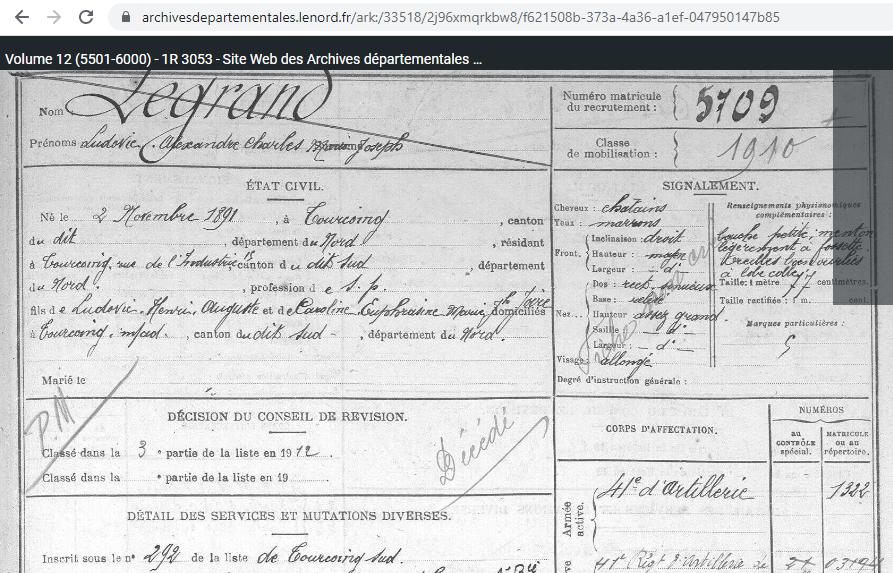 archivesdepartementales.lenord.fr/ark:/33518/2j96xmqrkbw8/f621508b-373a-4a36-a1ef-047950147b85
Volume 12 (5501-6000) - 1R 3053 - Site Web des Archives départementales ...
Nom : Legrand
Prénoms Ludovic Alexandre Charles Joseph
Numéro matricule du recrutement : 5709
Classe de mobilisation : 1910
ÉTAT CIVIL.
Né le 2 Novembre 1891, à Tourcoing, canton
du dit, département du Nord, résidant
à Tourcoing, rue de l'Industrie 15 canton du dit sud, département
du Nord., profession de s. p.
fils de Ludovic Henri Auguste et de Caroline Euphraine Marie domiciliés
à Tourcoing, canton du dit sud, département du Nord.
Marié le
SIGNALEMENT.
Cheveux : chatains
Yeux : marrons
Front. Inclinaison : droit
Hauteur : moyen
Largeur : - d° -
Nez. Dos : rect. sinueux
Base :
Hauteur assez grand
Saillie - d° -
Largeur : - d° -
Visage : allongé
Degré d'instruction générale :
Renseignements physionomiques
complémentaires :
bouche petite, menton
légèrement à fossette
Oreilles
à lobe collé
Taille : 1 mètre 77 centimètres.
Taille rectifiée : 1 m. cent.
Marques particulières :
P.M
DÉCISION DU CONSEIL DE REVISION.
Classé dans la 3e partie de la liste en 1912
Classé dans la e partie de la liste en 19
Décédé
CORPS D'AFFECTATION.
NUMÉROS
au CONTRÔLE spécial.
MATRICULE OU AU répertoire.
Armée active.
41e d'Artillerie 1322
DÉTAIL DES SERVICES ET MUTATIONS DIVERSES.
Inscrit sous le n° 292 de la liste de Tourcoing sud.
41e Régt d'Artillerie